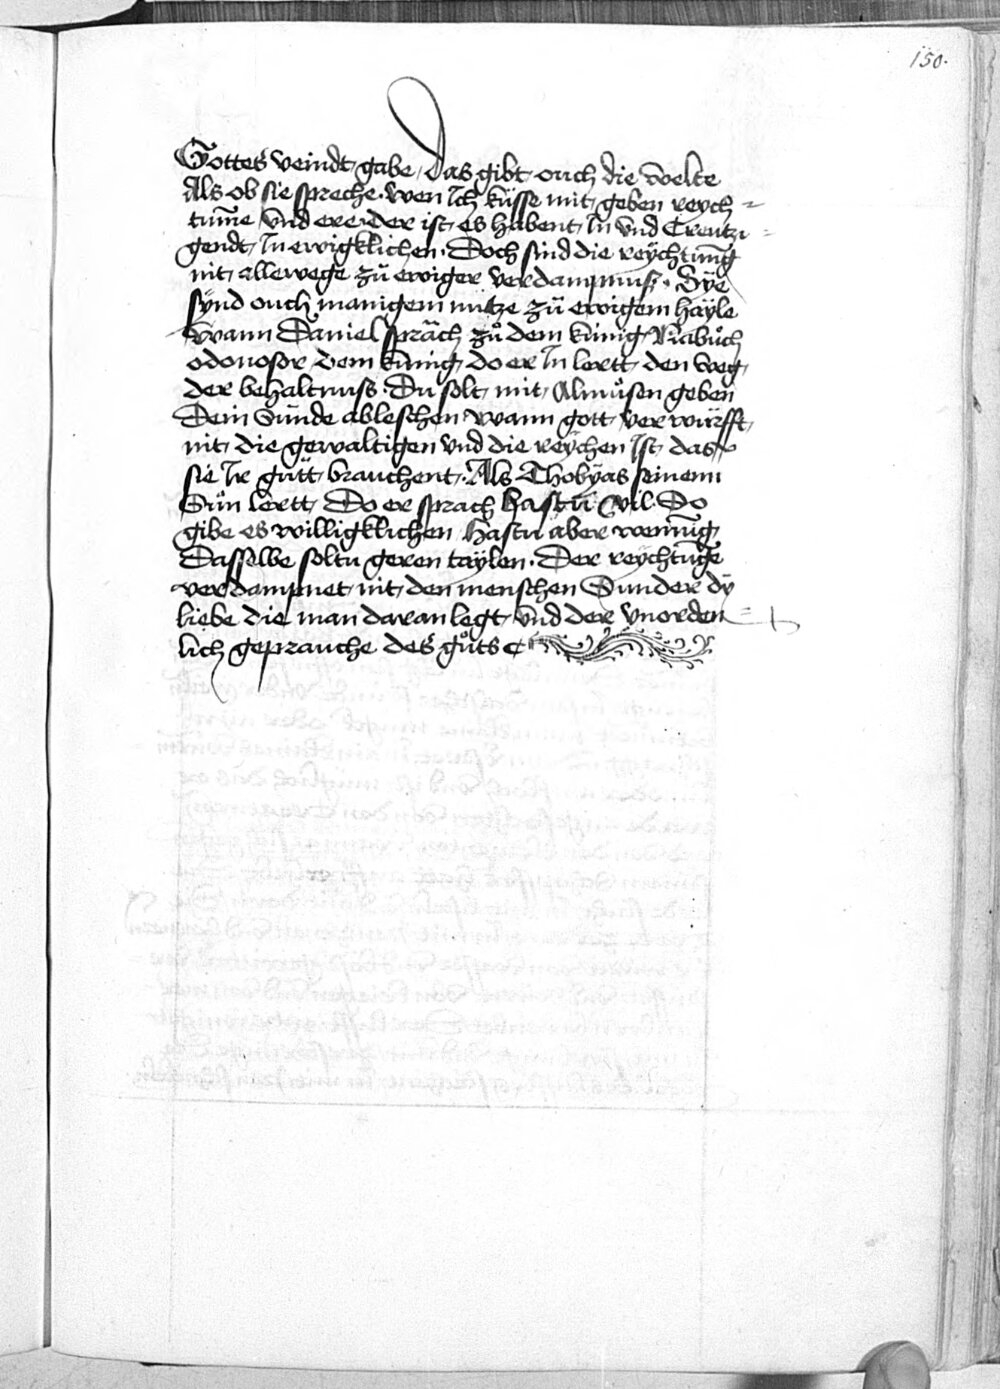 150.
Gottes veindt gabe, Das gibt ouch die welte
Als ob sie spreche. wen Ich küsse mit geben reych=
tum̄e vnd ere. der ist es habent In vnd Creutzi=
gendt In ewigklichen. Doch sind die reÿchtung
nit allewege zů ewiger verdampnuß. Sÿe
sÿnd ouch manigem nutze zů ewigem häyle
Wann Daniel sprach zů dem künig Nabuch
odonosor dem künig do er In lertt den weg
der behaltnuß. Du solt mit Almůsen geben
Dein Sünde ableschen wann gott verwürfft
nit die gewaltigen vnd die reÿchen Ist das
sie Ir gůtt brauchent. Als Thobÿas seinem
Sůn lertt Do er sprach Hastu vil. So
gibe es willigklichen Hastu aber wennig
Dasselbe soltu geren taÿlen. Der reÿchtung
verdampnet nit den menschen Sunder dÿ
liebe die man daran legt vnd der vnorden=
lich geprauche des gůts